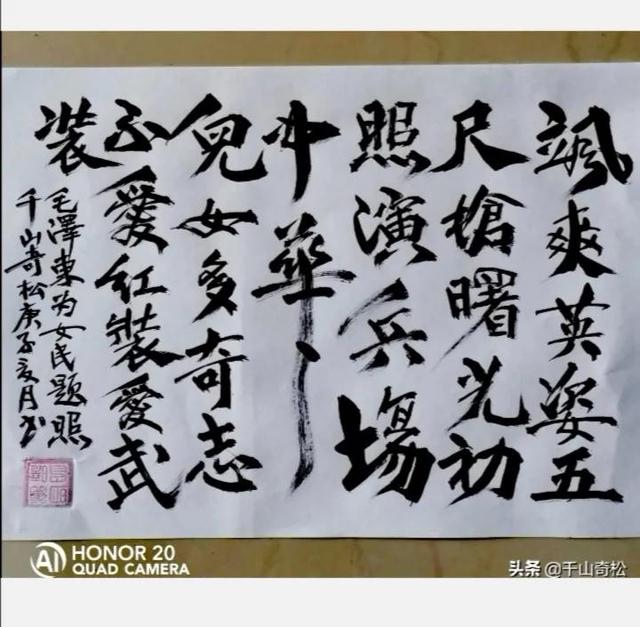 颯爽英姿五
尺槍曙光初
照演兵場
中華
兒女多奇志
不愛紅裝愛武
裝
毛澤東为女民題照
千山奇松庚子亥月书
AI HONOR 20
QUAD CAMERA
头条 @千山奇松